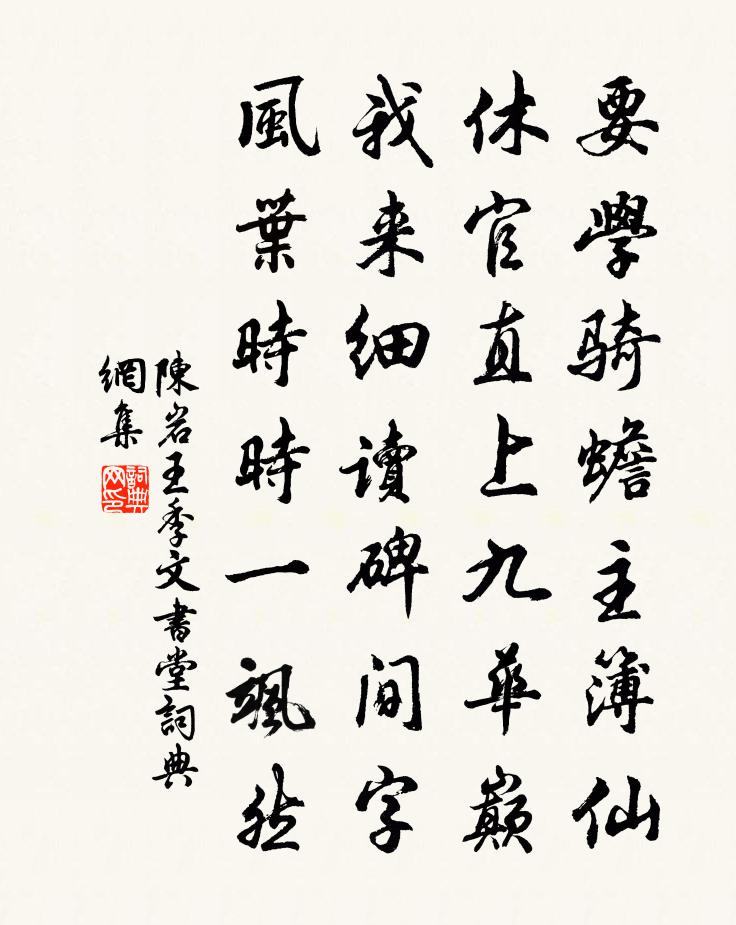 要學骑蟾主簿仙
休官直上九華巔
我来细讀碑间字
風葉時時一颯然
陳岩王季文書堂詞典
網集
詞典網印